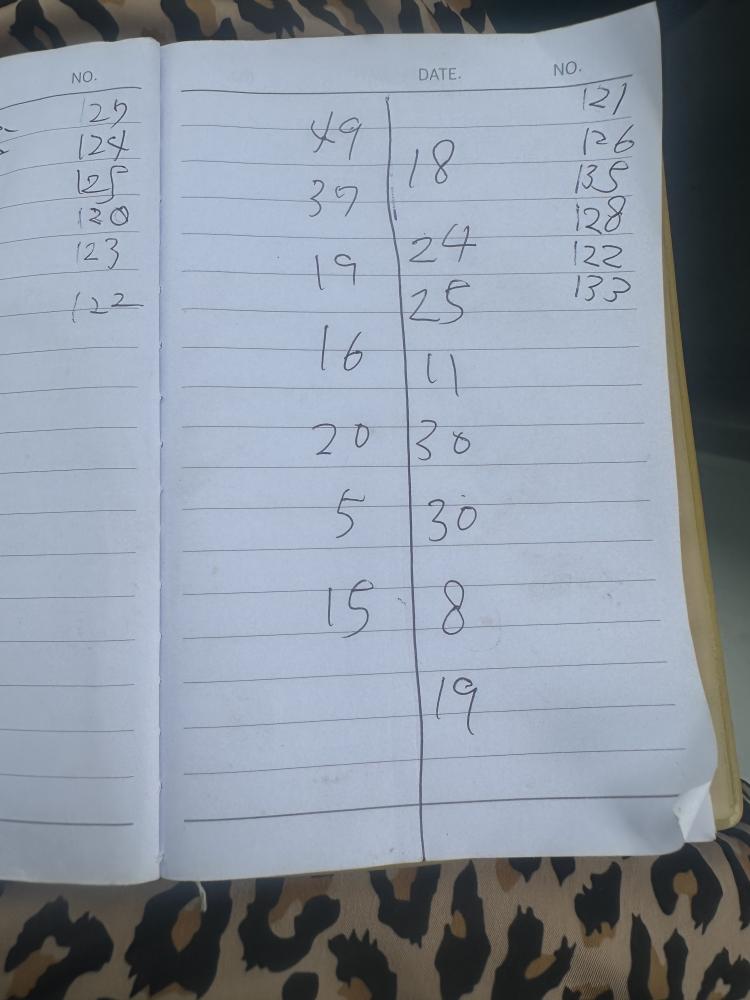 NO.
124
125
120
123
122
DATE. NO.
121
126
135
128
122
133
49
37
19
16
20
5
15
18
24
25
11
30
30
8
19